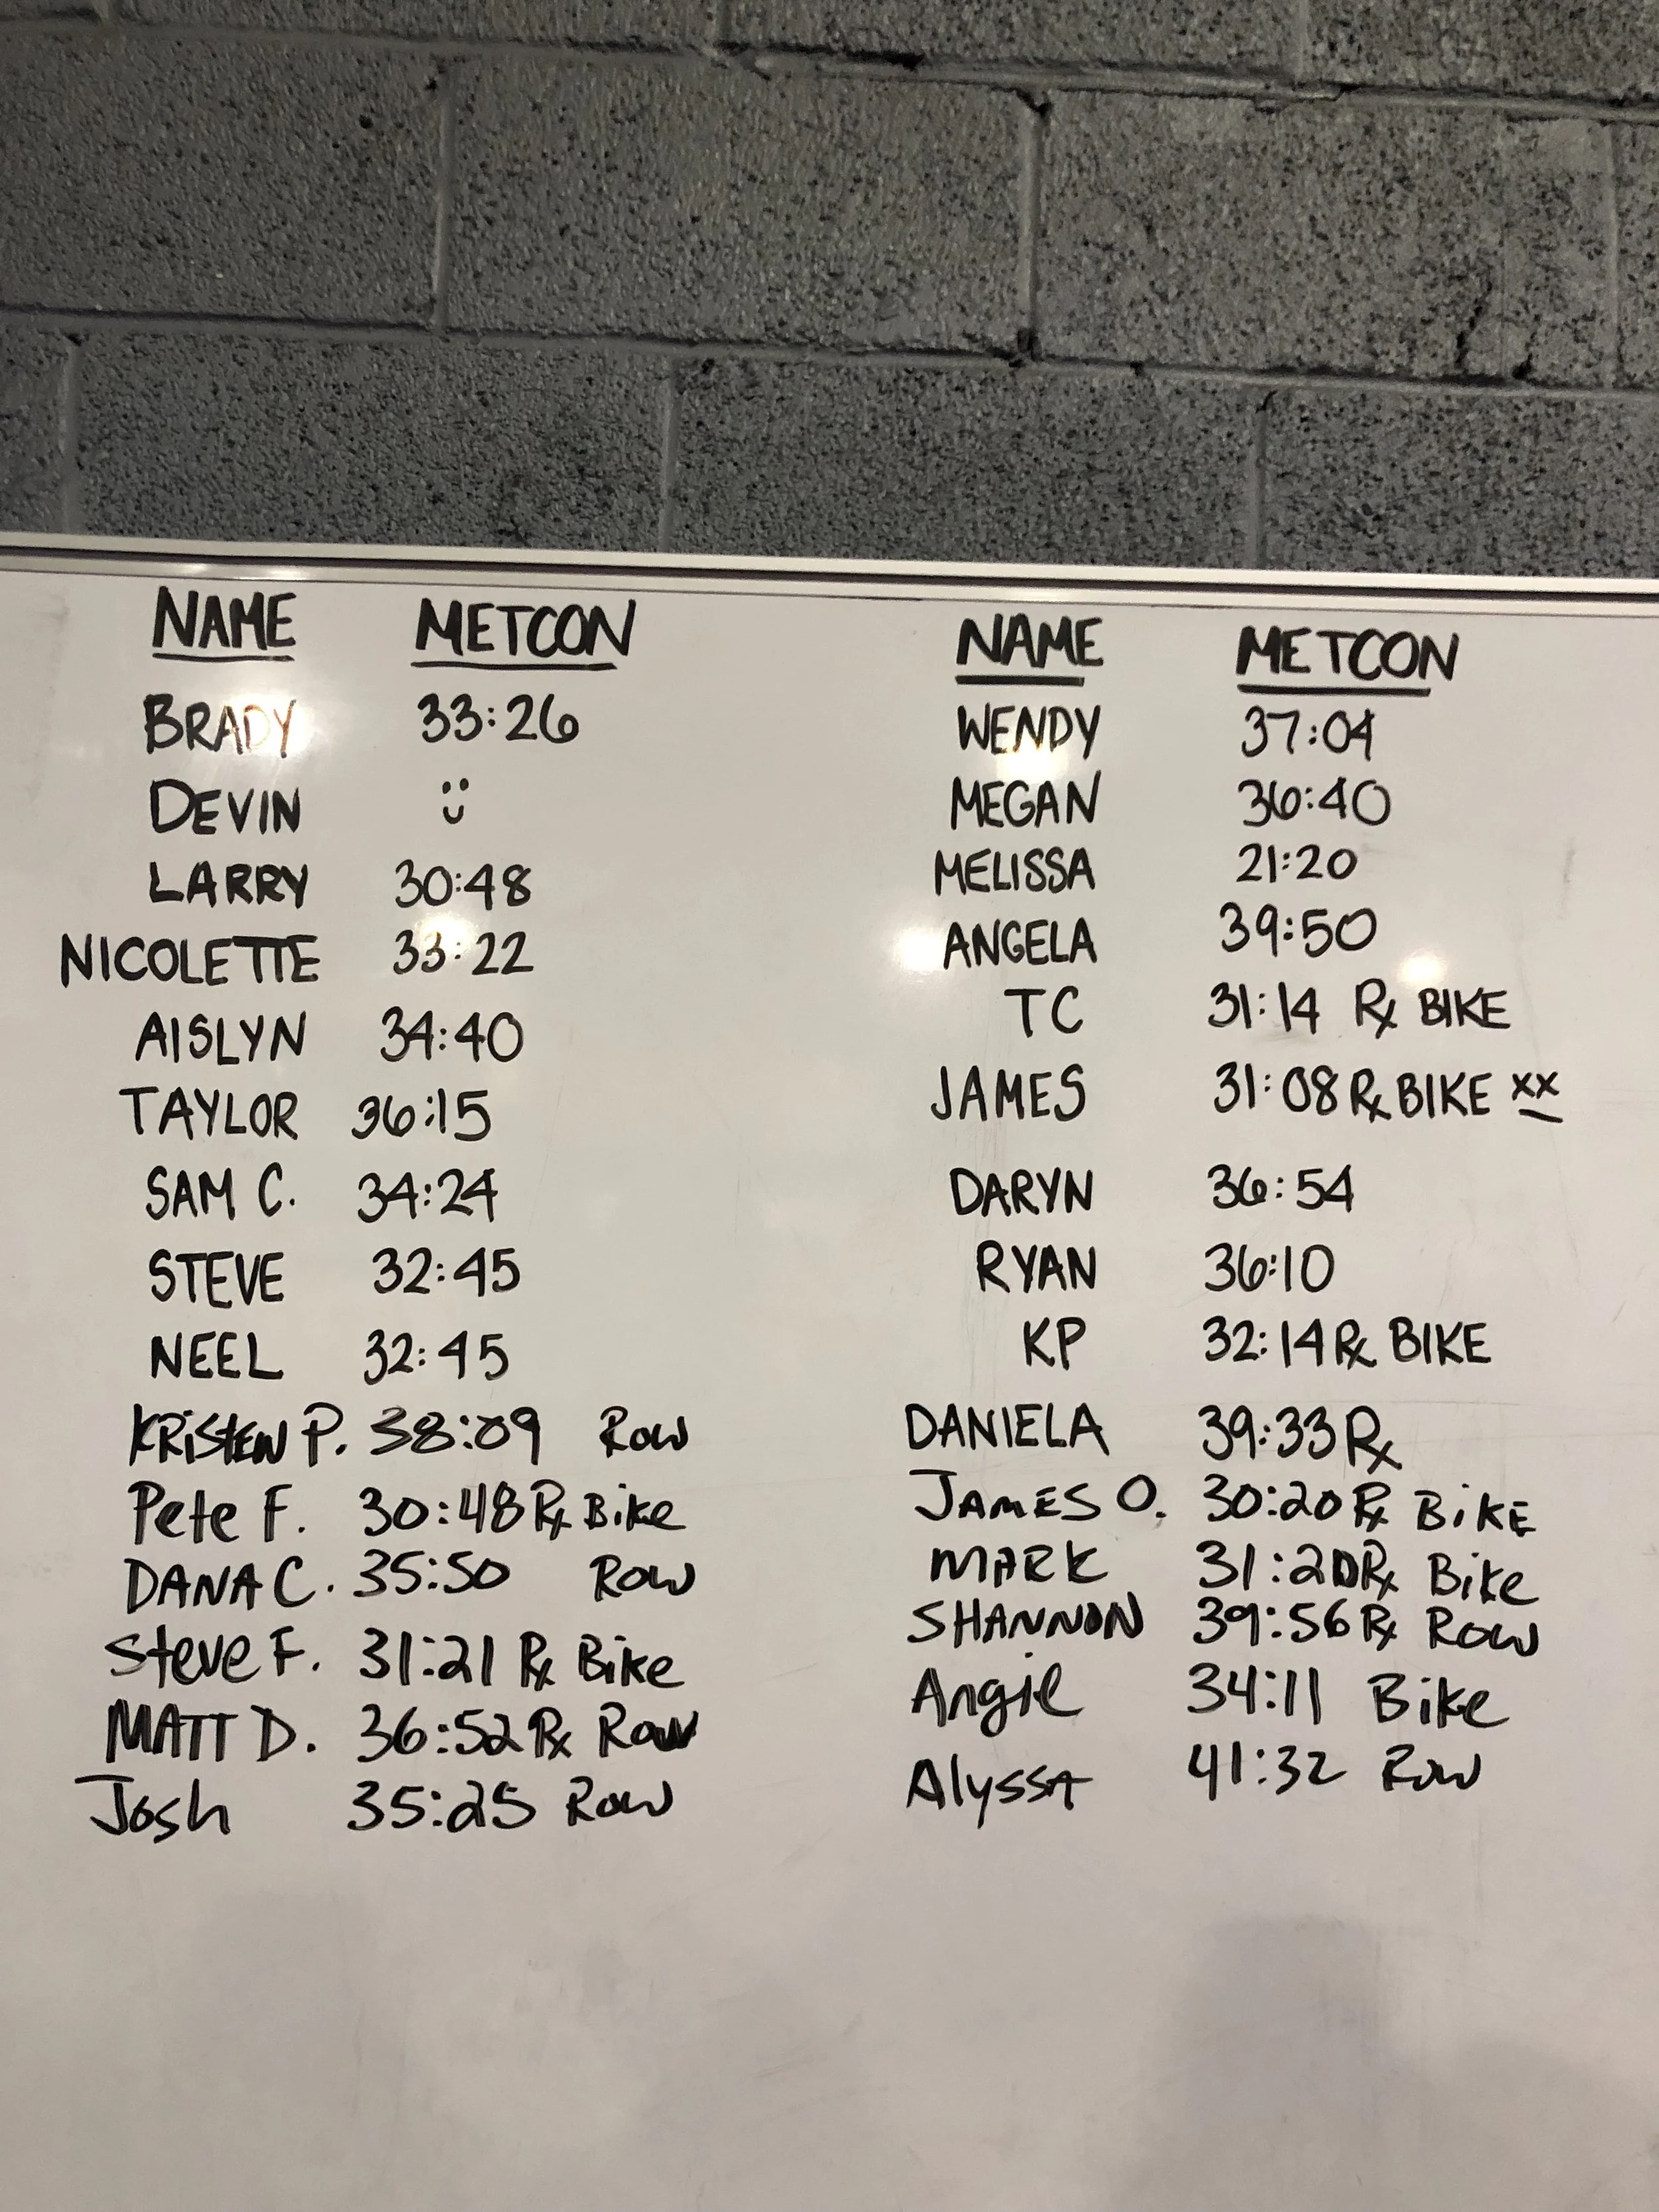 NAME METCON
BRADY 33:26
DEVIN :)
LARRY 30:48
NICOLETTE 33:22
AISLYN 34:40
TAYLOR 36:15
SAM C. 34:24
STEVE 32:45
NEEL 32:45
KRiSTEN P. 38:09 Row
Pete F. 30:48 Rx Bike
DANA C. 35:50 Row
Steve F. 31:21 Rx Bike
MATT D. 36:52 Rx Row
Josh 35:25 Row
NAME METCON
WENDY 37:04
MEGAN 36:40
MELISSA 21:20
ANGELA 39:50
TC 31:14 Rx BIKE
JAMES 31:08 Rx BIKE xx
DARYN 36:54
RYAN 36:10
KP 32:14 Rx BIKE
DANIELA 39:33 Rx
JAMES O. 30:20 Rx BiKE
MARK 31:20 Rx Bike
SHANNON 39:56 Rx Row
Angie 34:11 Bike
Alyssa 41:32 Row